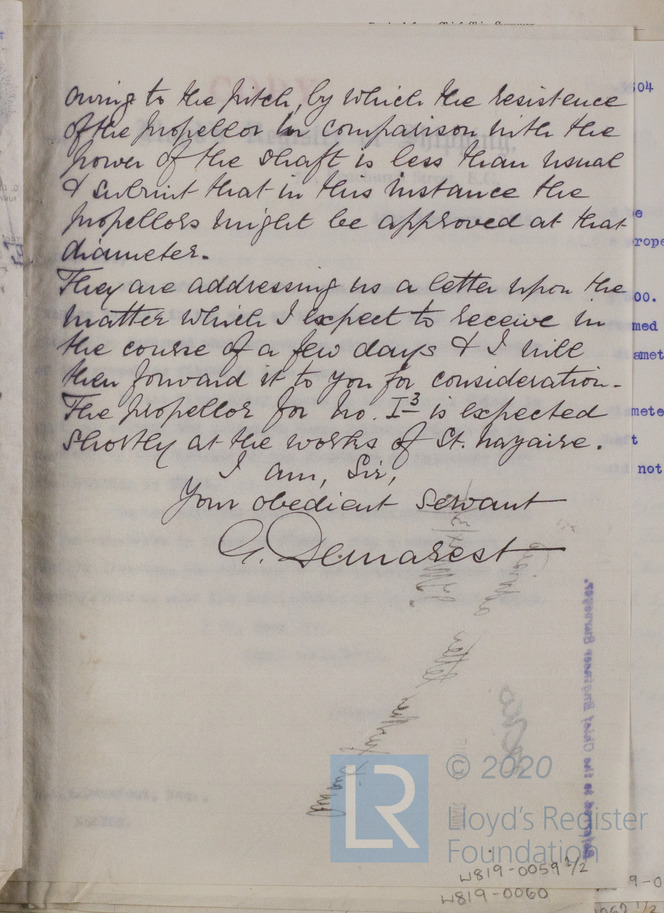 owing to the pitch, by which the resistence
of the propellor in comparison with the
power of the shaft is less than usual
& submit that in this instance the
propellors might be approved at that
diameter.
They are addressing us a letter upon the
matter which I expect to receive in
the course of a few days & I will
then forward it to you for consideration.
The propellor for no. I-3 is expected
shortly at the works of St. Nazaire.
I am, Sir,
Your obedient Servant
G. Demarest
Referred to the Chief Engineer Surveyor.
LR
© 2020
Lloyd's Register
Foundation
W819-0059 1/2
W819-0060